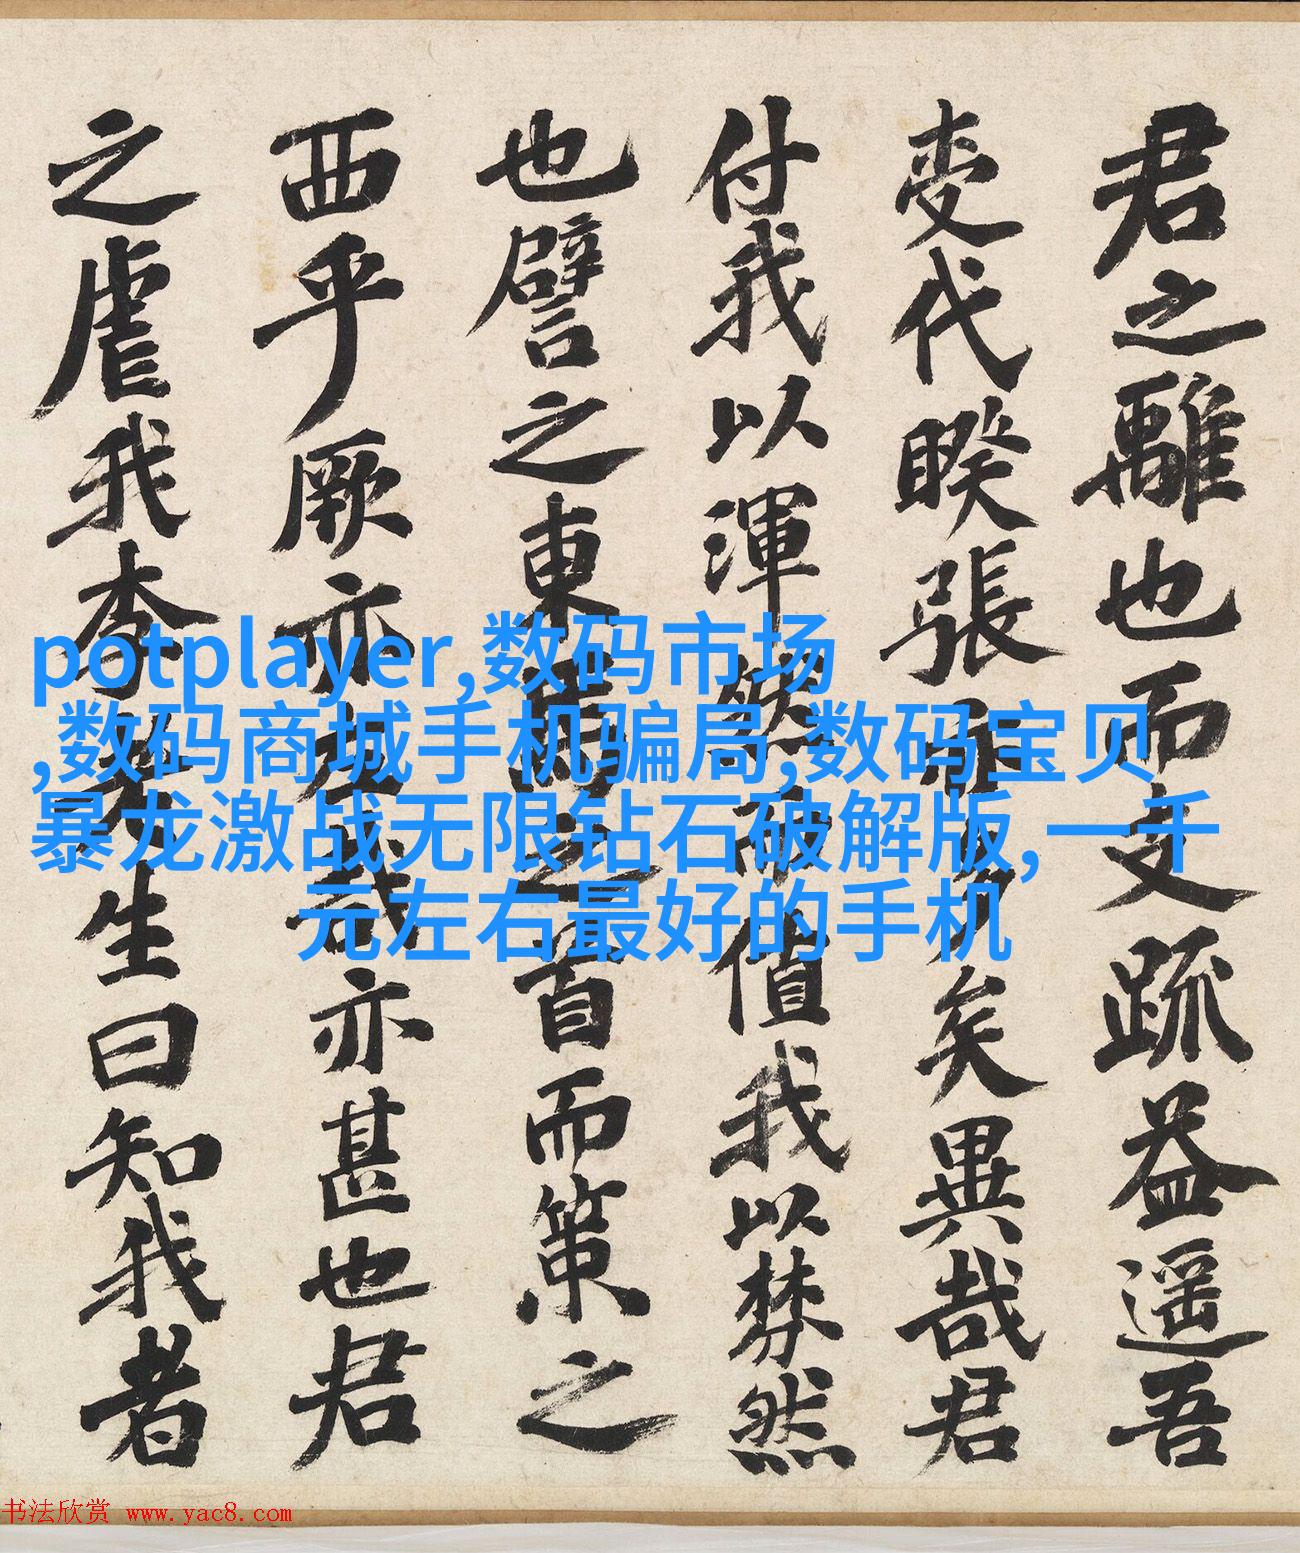 君之離也而文疏益遥吾
代睽張矣異哉君
付我以渾然而值我以棼然
也譬之東之首而策之
西乎厥亦哉亦甚也君
之虐我李生曰知我者
potplayer,数码市场
,数码商城手机骗局,数码宝贝
暴龙激战无限钻石破解版,一千
元左右最好的手机
书法欣赏 www.yac8.com